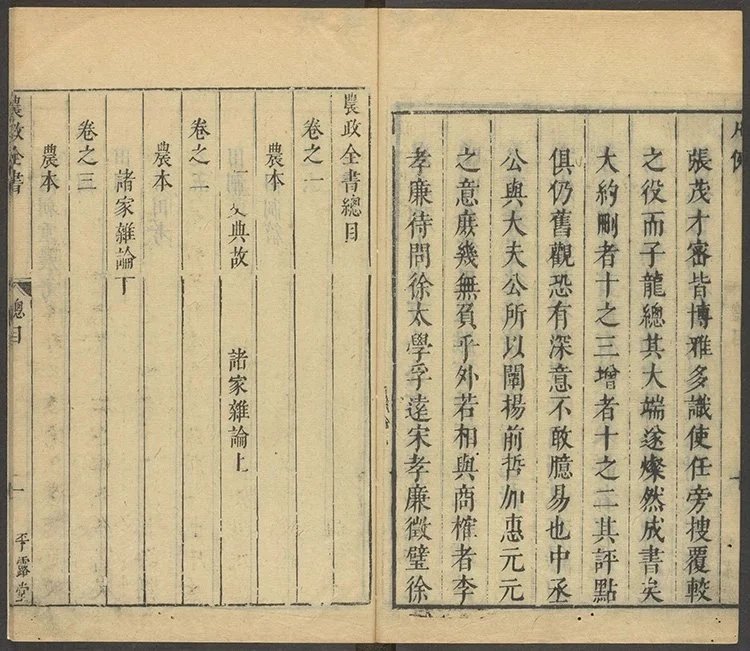 凡例
張茂才密皆博雅多識使任旁搜覆較
之役而子龍總其大端遂燦然成書矣
大約刪者十之三增者十之二其評點
俱仍舊觀恐有深意不敢臆易也中丞
公與大夫公所以闡楊前哲加惠元元
之意庶幾無負乎外若相與商榷者李
孝廉待問徐太學孚遠宋孝廉徵璧徐
農政全書總目
卷之一
農本
典故　諸家雜論上
卷之二
農本
諸家雜論下
卷之三
農本
農政全書　總目　一　平露堂